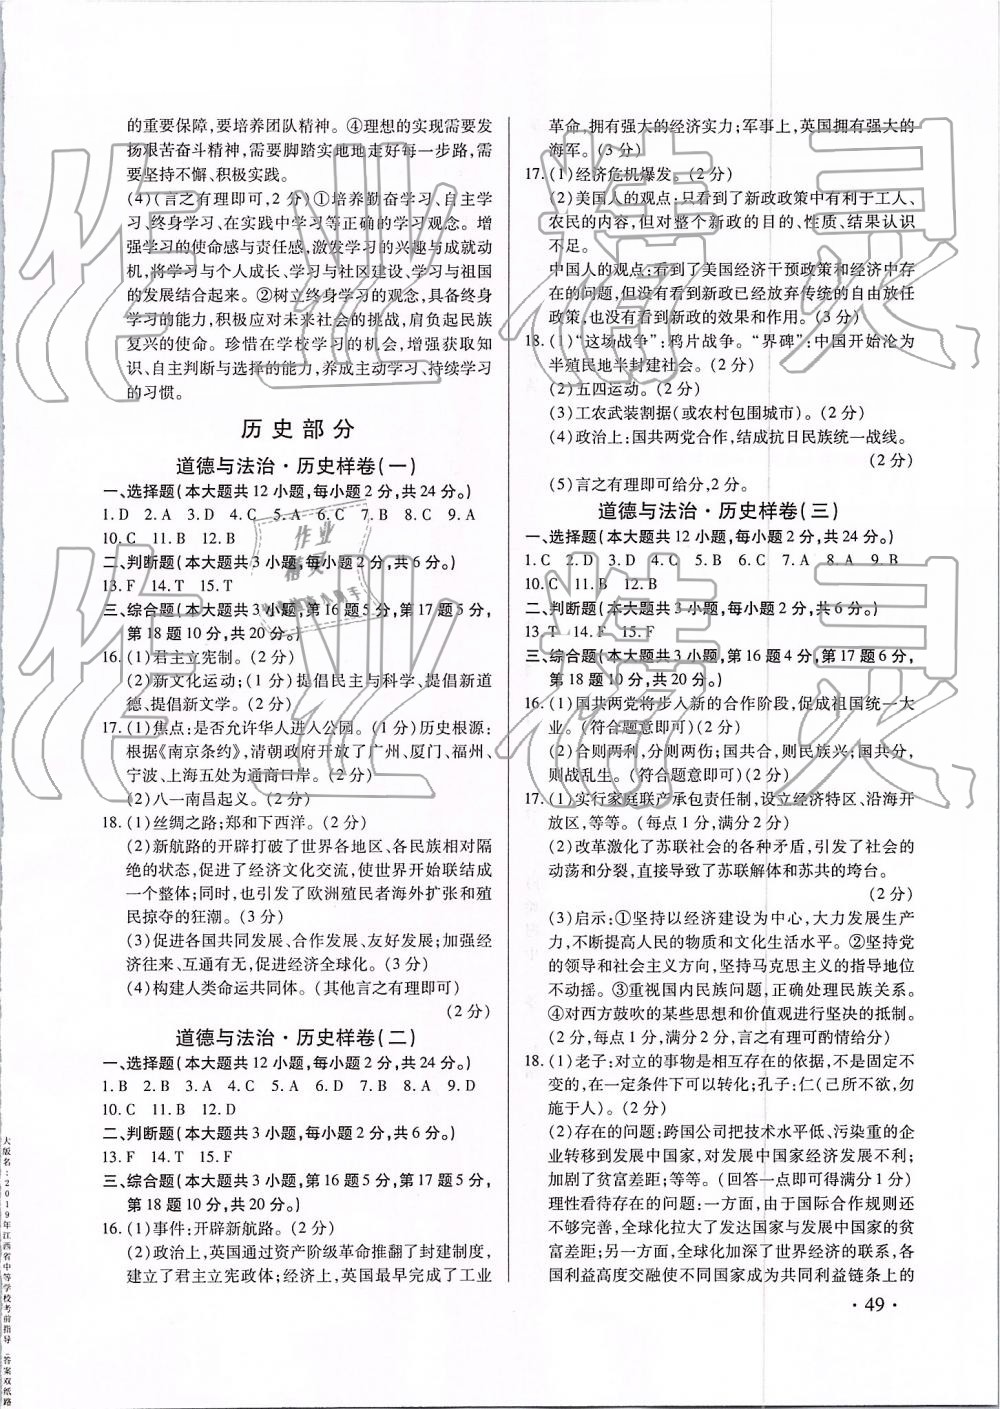 的重要保障,要培养团队精神。④理想的实现需要发
扬艰苦奋斗精神,需要脚踏实地地走好每一步路,需
要坚持不懈、积极实践。
(4)(言之有理即可,2分)①培养勤奋学习、自主学
习、终身学习、在实践中学习等正确的学习观念。增
强学习的使命感与责任感,激发学习的兴趣与成就动
机,将学习与个人成长、学习与社区建设、学习与祖国
的发展结合起来。②树立终身学习的观念,具备终身
学习的能力,积极应对未来社会的挑战,肩负起民族
复兴的使命。珍惜在学校学习的机会,增强获取知
识、自主判断与选择的能力,养成主动学习、持续学习
的习惯。
历史部分
道德与法治·历史样卷(一)
一、选择题(本大题共12小题,每小题2分,共24分。)
1.D 2.A 3.D 4.C 5.A 6.C 7.D 8.C 9.A
10.C 11.B 12.B
二、判断题(本大题共3小题,每小题2分,共6分。)
13.F 14.T 15.T
三、综合题(本大题共3小题,第16题5分,第17题5分,
第18题10分,共20分。)
16.(1)君主立宪制。(2分)
(2)新文化运动;(1分)提倡民主与科学、提倡新道
德、提倡新文学。(2分)
17.(1)焦点:是否允许华人进入公园。(1分)历史根源:
根据《南京条约》,清朝政府开放了广州、厦门、福州、
宁波、上海五处为通商口岸。(2分)
(2)八一南昌起义。(2分)
18.(1)丝绸之路;郑和下西洋。(2分)
(2)新航路的开辟打破了世界各地区、各民族相对隔
绝的状态,促进了经济文化交流,使世界开始联结成
一个整体;同时,也引发了欧洲殖民者海外扩张和殖
民掠夺的狂潮。(3分)
(3)促进各国共同发展、合作发展、友好发展;加强经
济往来、互通有无,促进经济全球化。(3分)
(4)构建人类命运共同体。(其他言之有理即可)
(2分)
道德与法治·历史样卷(二)
一、选择题(本大题共12小题,每小题2分,共24分。)
1.B 2.B 3.A 4.C 5.D 6.B 7.D 8.D 9.A
10.C 11.B 12.D
二、判断题(本大题共3小题,每小题2分,共6分。)
13.F 14.T 15.F
三、综合题(本大题共3小题,第16题5分,第17题5分,
第18题10分,共20分。)
16.(1)事件:开辟新航路。(2分)
(2)政治上,英国通过资产阶级革命推翻了封建制度,
建立了君主立宪政体;经济上,英国最早完成了工业
革命,拥有强大的经济实力;军事上,英国拥有强大的
海军。(3分)
17.(1)经济危机爆发。(2分)
(2)美国人的观点:只看到了新政政策中有利于工人、
农民的内容,但对整个新政的目的、性质、结果认识
不足。
中国人的观点:看到了美国经济干预政策和经济中存
在的问题,但没有看到新政已经放弃传统的自由放任
政策,也没有看到新政的效果和作用。(3分)
18.(1)“这场战争”:鸦片战争。“界碑”:中国开始沦为
半殖民地半封建社会。(2分)
(2)五四运动。(2分)
(3)工农武装割据(或农村包围城市)。(2分)
(4)政治上:国共两党合作,结成抗日民族统一战线。
(2分)
(5)言之有理即可给分,2分。
道德与法治·历史样卷(三)
一、选择题(本大题共12小题,每小题2分,共24分。)
1.C 2.B 3.D 4.B 5.C 6.C 7.D 8.A 9.B
10.C 11.B 12.C
二、判断题(本大题共3小题,每小题2分,共6分。)
13.T 14.F 15.F
三、综合题(本大题共3小题,第16题4分,第17题6分,
第18题10分,共20分。)
16.(1)国共两党将步入新的合作阶段,促成祖国统一大
业。(符合题意即可)(2分)
(2)合则两利,分则两伤;国共合,则民族兴;国共分,
则战乱生。(符合题意即可)(2分)
17.(1)实行家庭联产承包责任制,设立经济特区、沿海开
放区,等等。(每点1分,满分2分)
(2)改革激化了苏联社会的各种矛盾,引发了社会的
动荡和分裂,直接导致了苏联解体和苏共的垮台。
(2分)
(3)启示:①坚持以经济建设为中心,大力发展生产
力,不断提高人民的物质和文化生活水平。②坚持党
的领导和社会主义方向,坚持马克思主义的指导地位
不动摇。③重视国内民族问题,正确处理民族关系。
④对西方鼓吹的某些思想和价值观进行坚决的抵制。
(2分,每点1分,满分2分,言之有理可酌情给分)
18.(1)老子:对立的事物是相互存在的依据,不是固定不
变的,在一定条件下可以转化;孔子:仁(己所不欲,勿
施于人)。(2分)
(2)存在的问题:跨国公司把技术水平低、污染重的企
业转移到发展中国家,对发展中国家经济发展不利;
加剧了贫富差距;等等。(回答一点即可得满分1分)
理性看待存在的问题:一方面,由于国际合作规则还
不够完善,全球化拉大了发达国家与发展中国家的贫
富差距;另一方面,全球化加深了世界经济的联系,各
国利益高度交融使不同国家成为共同利益链条上的
·49·
大版名:2019年江西省中等学校考前指导 答案双纸路
作业精灵
作业精灵
作业
精灵